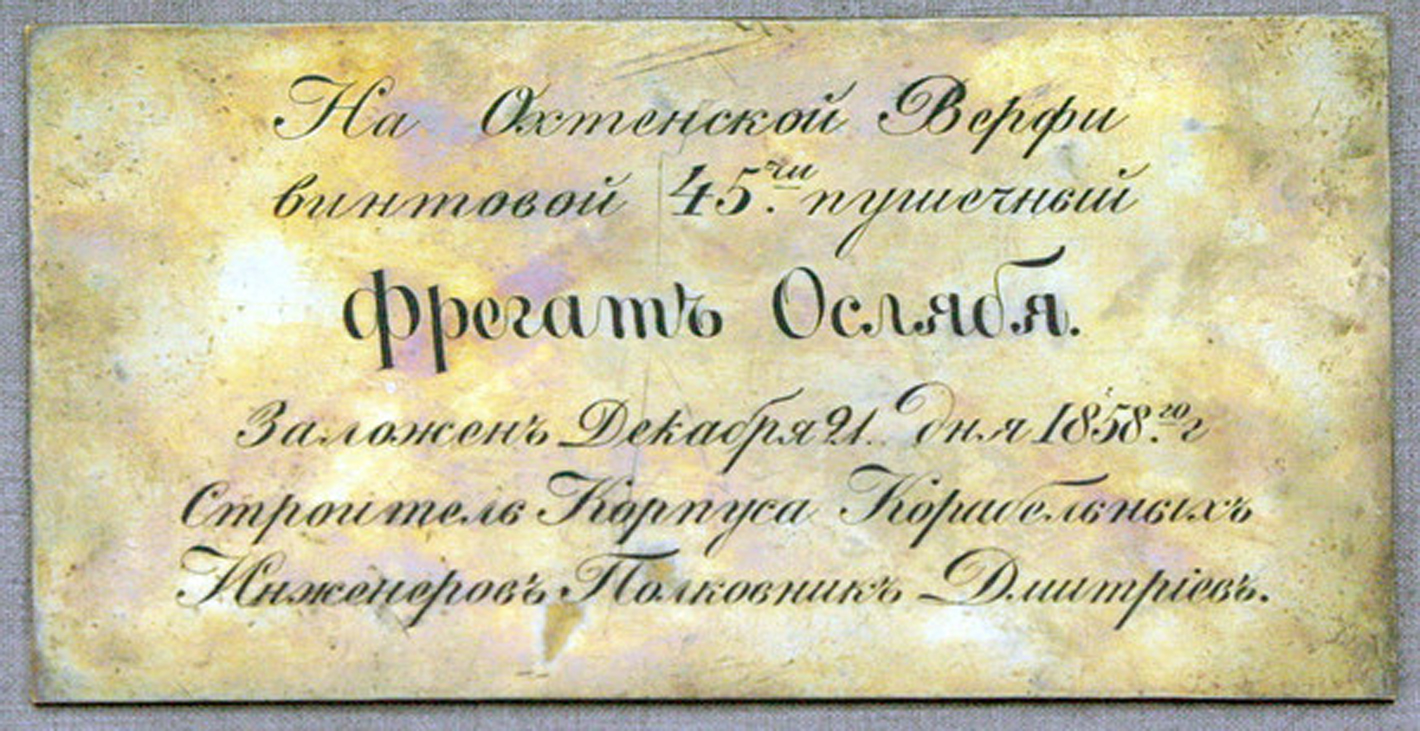 На Охтенской Верфи
винтовой 45.ти пушечный
фрегатъ Ослябя.
Заложенъ Декабря 21. дня 1858.го г
Строитель Корпуса Корабельныхъ
Инженеровъ Полковникъ Дмитріевъ.